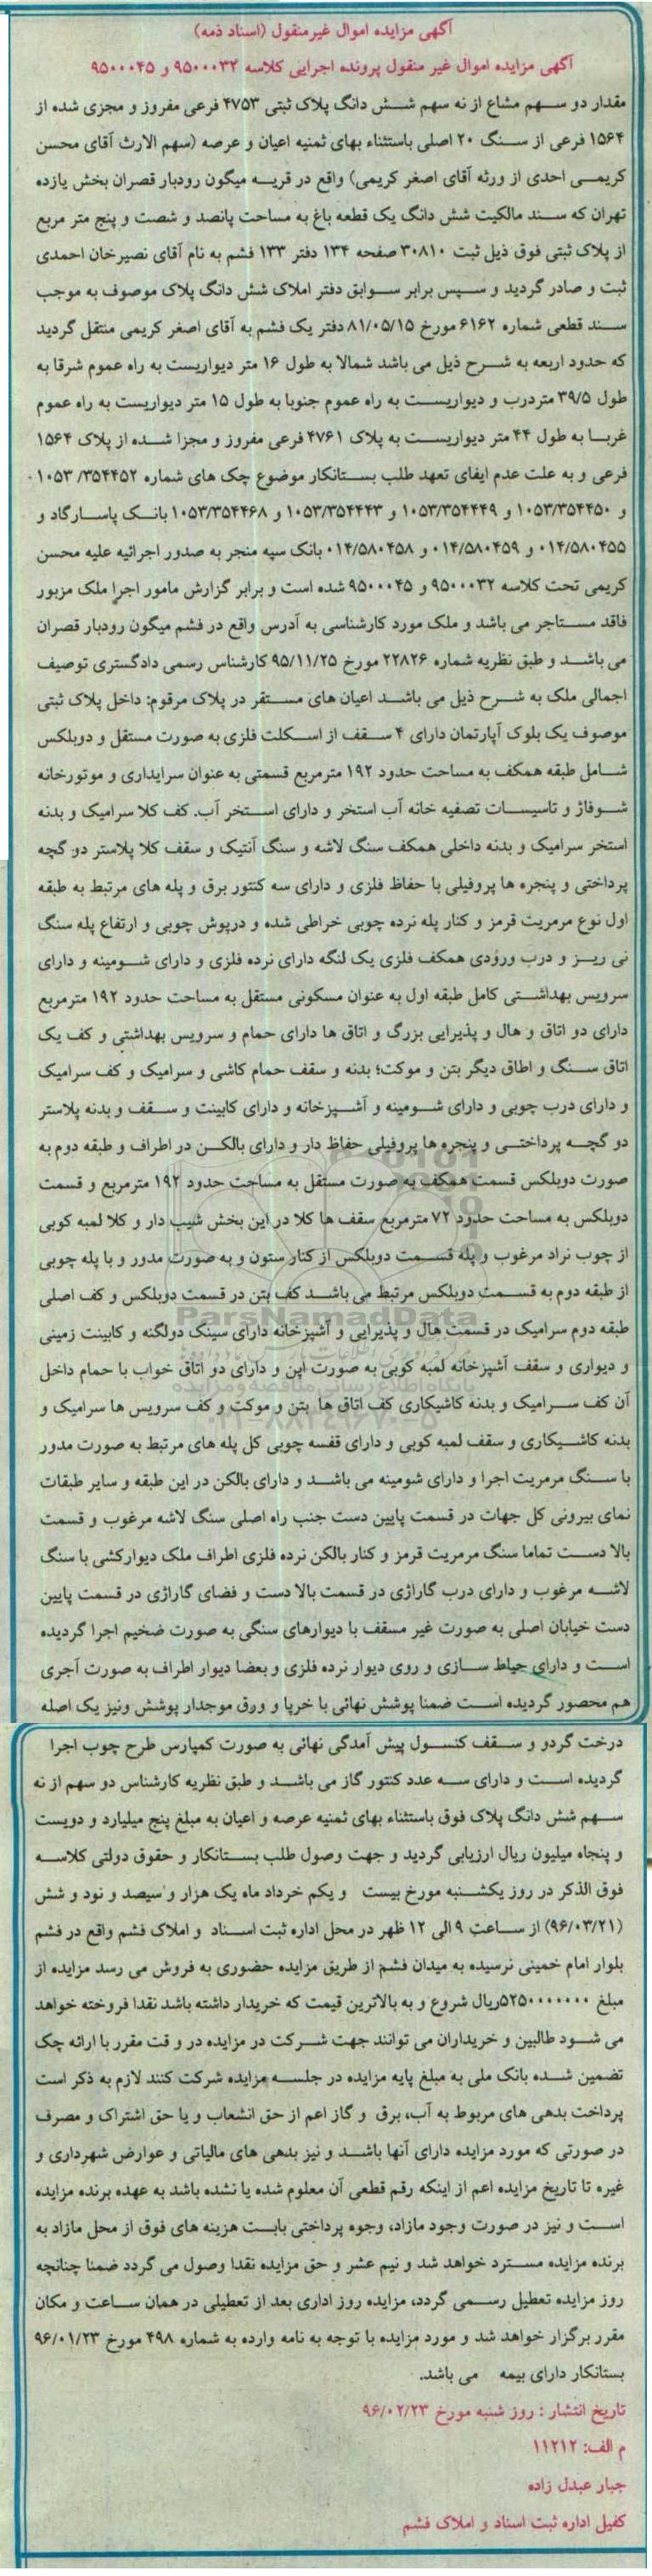 آگهی مزایده اموال غیرمنقول (اسناد ذمه)
آگهی مزایده اموال غیر منقول پرونده اجرایی کلاسه ۹۵۰۰۰۳۲ و ۹۵۰۰۰۴۵
مقدار دو سهم مشاع از نه سهم شش دانگ پلاک ثبتی ۴۷۵۳ فرعی مفروز و مجزی شده از
۱۵۶۴ فرعی از سنگ ۲۰ اصلی باستثناء بهای ثمنیه اعیان و عرصه (سهم الارث آقای محسن
کریمی احدی از ورثه آقای اصغر کریمی) واقع در قریه میگون رودبار قصران بخش یازده
تهران که سند مالکیت شش دانگ یک قطعه باغ به مساحت پانصد و شصت و پنج متر مربع
از پلاک ثبتی فوق ذیل ثبت ۳۰۸۱۰ صفحه ۱۳۴ دفتر ۱۳۳ فشم به نام آقای نصیرخان احمدی
ثبت و صادر گردید و سپس برابر سوابق دفتر املاک شش دانگ پلاک موصوف به موجب
سند قطعی شماره ۶۱۶۲ مورخ ۸۱/۰۵/۱۵ دفتر یک فشم به آقای اصغر کریمی منتقل گردید
که حدود اربعه به شرح ذیل می باشد شمالا به طول ۱۶ متر دیواریست به راه عموم شرقا به
طول ۳۹/۵ متردرب و دیواریست به راه عموم جنوبا به طول ۱۵ متر دیواریست به راه عموم
غربا به طول ۴۴ متر دیواریست به پلاک ۴۷۶۱ فرعی مفروز و مجزا شده از پلاک ۱۵۶۴
فرعی و به علت عدم ایفای تعهد طلب بستانکار موضوع چک های شماره ۱۰۵۳/۳۵۴۴۵۲
و ۱۰۵۳/۳۵۴۴۵۰ و ۱۰۵۳/۳۵۴۴۴۹ و ۱۰۵۳/۳۵۴۴۴۳ و ۱۰۵۳/۳۵۴۴۶۸ بانک پاسارگاد و
۰۱۴/۵۸۰۴۵۵ و ۰۱۴/۵۸۰۴۵۹ و ۰۱۴/۵۸۰۴۵۸ بانک سپه منجر به صدور اجرائیه علیه محسن
کریمی تحت کلاسه ۹۵۰۰۰۳۲ و ۹۵۰۰۰۴۵ شده است و برابر گزارش مامور اجرا ملک مزبور
فاقد مستاجر می باشد و ملک مورد کارشناسی به آدرس واقع در فشم میگون رودبار قصران
می باشد و طبق نظریه شماره ۲۲۸۲۶ مورخ ۹۵/۱۱/۲۵ کارشناس رسمی دادگستری توصیف
اجمالی ملک به شرح ذیل می باشد اعیان های مستقر در پلاک مرقوم: داخل پلاک ثبتی
موصوف یک بلوک آپارتمان دارای ۴ سقف از اسکلت فلزی به صورت مستقل و دوبلکس
شامل طبقه همکف به مساحت حدود ۱۹۲ مترمربع قسمتی به عنوان سرایداری و موتورخانه
شوفاژ و تاسیسات تصفیه خانه آب استخر و دارای استخر آب. کف کلا سرامیک و بدنه
استخر سرامیک و بدنه داخلی همکف سنگ لاشه و سنگ آنتیک و سقف کلا پلاستر دو گچه
پرداختی و پنجره ها پروفیلی با حفاظ فلزی و دارای سه کنتور برق و پله های مرتبط به طبقه
اول نوع مرمریت قرمز و کنار پله نرده چوبی خراطی شده و درپوش چوبی و ارتفاع پله سنگ
نی ریز و درب ورودی همکف فلزی یک لنگه دارای نرده فلزی و دارای شومینه و دارای
سرویس بهداشتی کامل طبقه اول به عنوان مسکونی مستقل به مساحت حدود ۱۹۲ مترمربع
دارای دو اتاق و هال و پذیرایی بزرگ و اتاق ها دارای حمام و سرویس بهداشتی و کف یک
اتاق سنگ و اطاق دیگر بتن و موکت؛ بدنه و سقف حمام کاشی و سرامیک و کف سرامیک
و دارای درب چوبی و دارای شومینه و آشپزخانه و دارای کابینت و سقف و بدنه پلاستر
دو گچه پرداختی و پنجره ها پروفیلی حفاظ دار و دارای بالکن در اطراف و طبقه دوم به
صورت دوبلکس قسمت همکف به صورت مستقل به مساحت حدود ۱۹۲ مترمربع و قسمت
دوبلکس به مساحت حدود ۷۲ مترمربع سقف ها کلا در این بخش شیب دار و کلا لمبه کوبی
از چوب نراد مرغوب و پله قسمت دوبلکس از کنار ستون و به صورت مدور و با پله چوبی
از طبقه دوم به قسمت دوبلکس مرتبط می باشد کف بتن در قسمت دوبلکس و کف اصلی
طبقه دوم سرامیک در قسمت هال و پذیرایی و آشپزخانه دارای سینک دولگنه و کابینت زمینی
و دیواری و سقف آشپزخانه لمبه کوبی به صورت اپن و دارای دو اتاق خواب با حمام داخل
آن کف سرامیک و بدنه کاشیکاری کف اتاق ها بتن و موکت و کف سرویس ها سرامیک و
بدنه کاشیکاری و سقف لمبه کوبی و دارای قفسه چوبی کل پله های مرتبط به صورت مدور
با سنگ مرمریت اجرا و دارای شومینه می باشد و دارای بالکن در این طبقه و سایر طبقات
نمای بیرونی کل جهات در قسمت پایین دست جنب راه اصلی سنگ لاشه مرغوب و قسمت
بالا دست تماما سنگ مرمریت قرمز و کنار بالکن نرده فلزی اطراف ملک دیوارکشی با سنگ
لاشه مرغوب و دارای درب گاراژی در قسمت بالا دست و فضای گاراژی در قسمت پایین
دست خیابان اصلی به صورت غیر مسقف با دیوارهای سنگی به صورت ضخیم اجرا گردیده
است و دارای حیاط سازی و روی دیوار نرده فلزی و بعضا دیوار اطراف به صورت آجری
هم محصور گردیده است ضمنا پوشش نهائی با خرپا و ورق موجدار پوشش ونیز یک اصله
درخت گردو و سقف کنسول پیش آمدگی نهائی به صورت کمپارس طرح چوب اجرا
گردیده است و دارای سه عدد کنتور گاز می باشد و طبق نظریه کارشناس دو سهم از نه
سهم شش دانگ پلاک فوق باستثناء بهای ثمنیه عرصه و اعیان به مبلغ پنج میلیارد و دویست
و پنجاه میلیون ریال ارزیابی گردید و جهت وصول طلب بستانکار و حقوق دولتی کلاسه
فوق الذکر در روز یکشنبه مورخ بیست و یکم خرداد ماه یک هزار و سیصد و نود و شش
(۹۶/۰۳/۲۱) از ساعت ۹ الی ۱۲ ظهر در محل اداره ثبت اسناد و املاک فشم واقع در فشم
بلوار امام خمینی نرسیده به میدان فشم از طریق مزایده حضوری به فروش می رسد مزایده از
مبلغ ۵۲۵۰۰۰۰۰۰۰ریال شروع و به بالاترین قیمت که خریدار داشته باشد نقدا فروخته خواهد
می شود طالبین و خریداران می توانند جهت شرکت در مزایده در و قت مقرر با ارائه چک
تضمین شده بانک ملی به مبلغ پایه مزایده در جلسه مزایده شرکت کنند لازم به ذکر است
پرداخت بدهی های مربوط به آب، برق و گاز اعم از حق انشعاب و یا حق اشتراک و مصرف
در صورتی که مورد مزایده دارای آنها باشد و نیز بدهی های مالیاتی و عوارض شهرداری و
غیره تا تاریخ مزایده اعم از اینکه رقم قطعی آن معلوم شده یا نشده باشد به عهده برنده مزایده
است و نیز در صورت وجود مازاد، وجوه پرداختی بابت هزینه های فوق از محل مازاد به
برنده مزایده مسترد خواهد شد و نیم عشر و حق مزایده نقدا وصول می گردد ضمنا چنانچه
روز مزایده تعطیل رسمی گردد، مزایده روز اداری بعد از تعطیلی در همان ساعت و مکان
مقرر برگزار خواهد شد و مورد مزایده با توجه به نامه وارده به شماره ۴۹۸ مورخ ۹۶/۰۱/۲۳
بستانکار دارای بیمه می باشد.
تاریخ انتشار : روز شنبه مورخ ۹۶/۰۲/۲۳
م الف: ۱۱۲۱۲
جبار عبدل زاده
کفیل اداره ثبت اسناد و املاک فشم
ParsNamadData